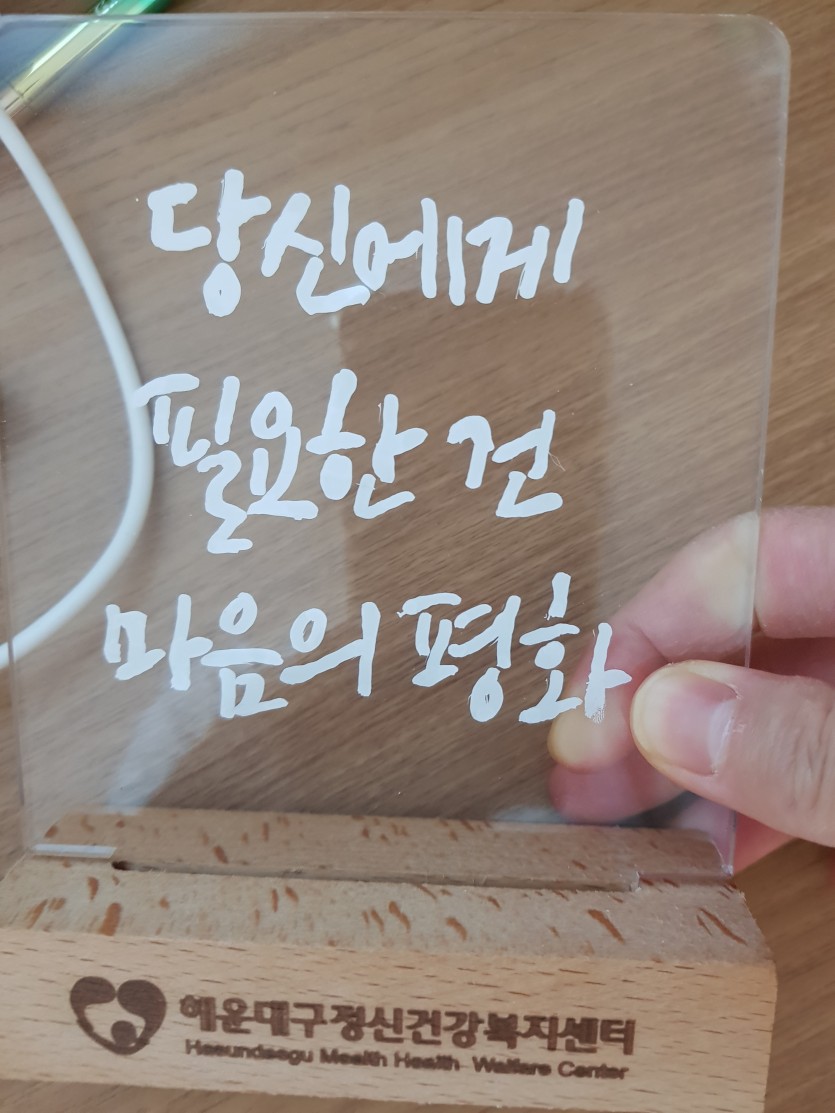 당신에게
필요한 건
마음의 평화
해운대구정신건강복지센터
Haeundaegu Mealth Health Welfare Center